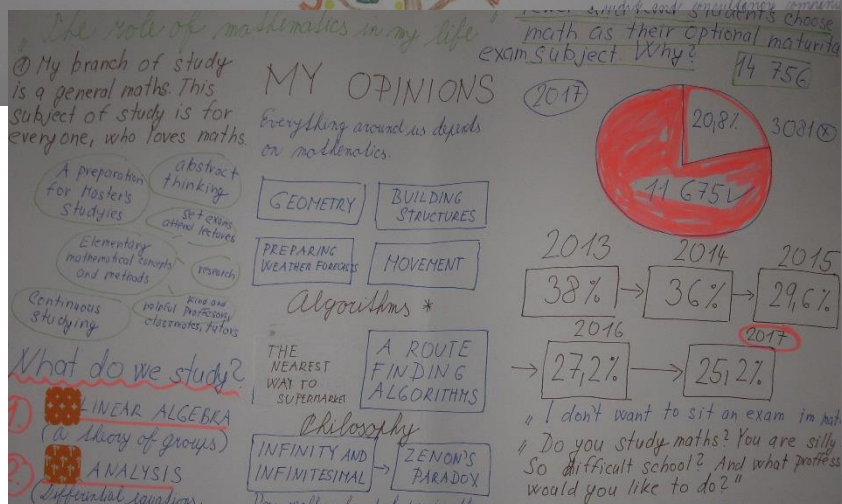 "The role of mathematics in my life"
My branch of study
is a general maths. This
subject of study is for
everyone, who loves maths.
A preparation
for Master's
studyies
abstract
thinking
set exams
attend lectures
Elementary
mathematical concepts
and methods
research
Continuous
studying
kind and
helpful proffesors,
classmates, tutors
What do we study?
1.
LINEAR ALGEBRA
(a theory of groups)
2.
ANALYSIS
(Differential equations,
MY OPINIONS
Everything around us depends
on mathematics.
GEOMETRY
BUILDING
STRUCTURES
PREPARING
WEATHER FORECASTS
MOVEMENT
Algorithms *
THE
NEAREST
WAY TO
SUPERMARKET
A ROUTE
FINDING
ALGORITHMS
Philosophy
INFINITY AND
INFINITESIMAL
ZENON'S
PARADOX
students choose
math as their optional maturita
exam subject. Why?
14 756
2017
20,8%
3081
11 675
2013
38%
2014
36%
2015
29,6%
2016
27,2%
2017
25,2%
"I don't want to sit an exam im mat
"Do you study maths? You are silly
So difficult school? And what proffess
would you like to do?"